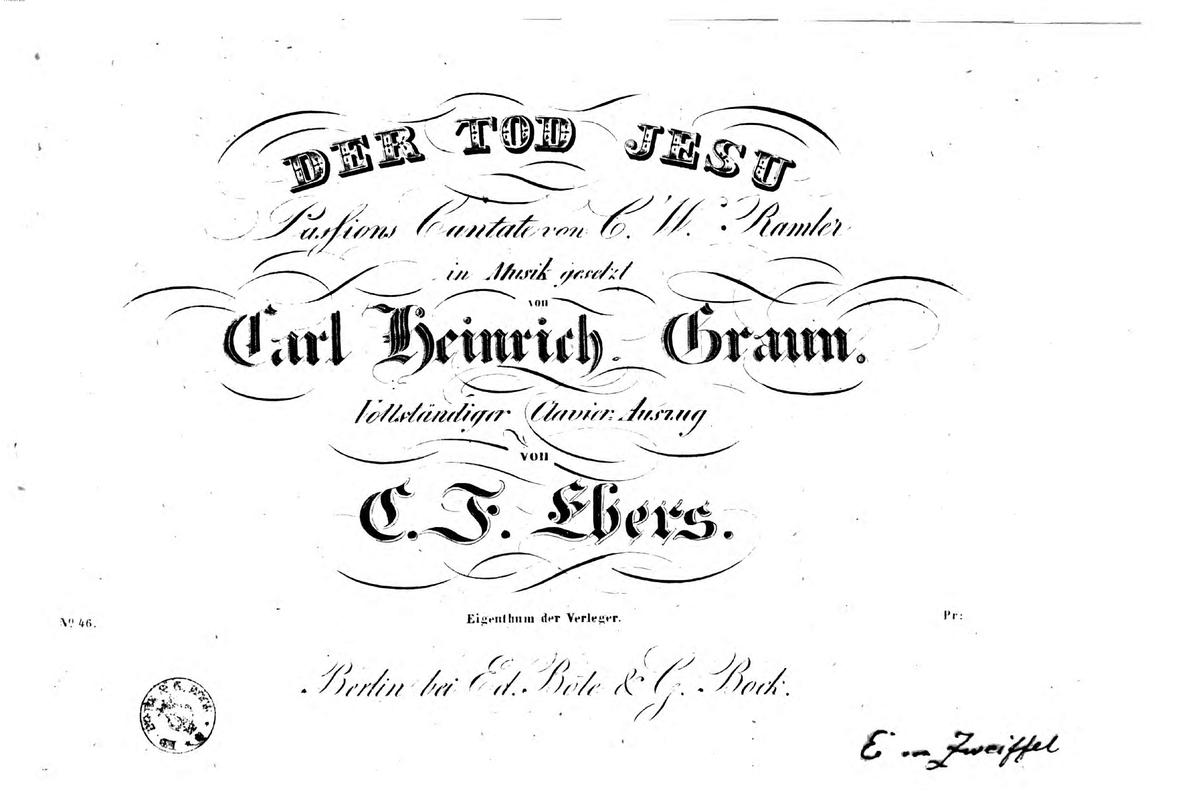 DER TOD JESU
Passions Cantate von C. W. Ramler
in Musik gesetzt
von
Carl Heinrich Graun.
Vollständiger Clavier-Auszug
von
C. F. Ebers.
No 46.
Eigenthum der Verleger.
Pr:
Berlin bei Ed. Bote & G. Bock.
ED. BOTE & G. BOCK
E v Zweiffel